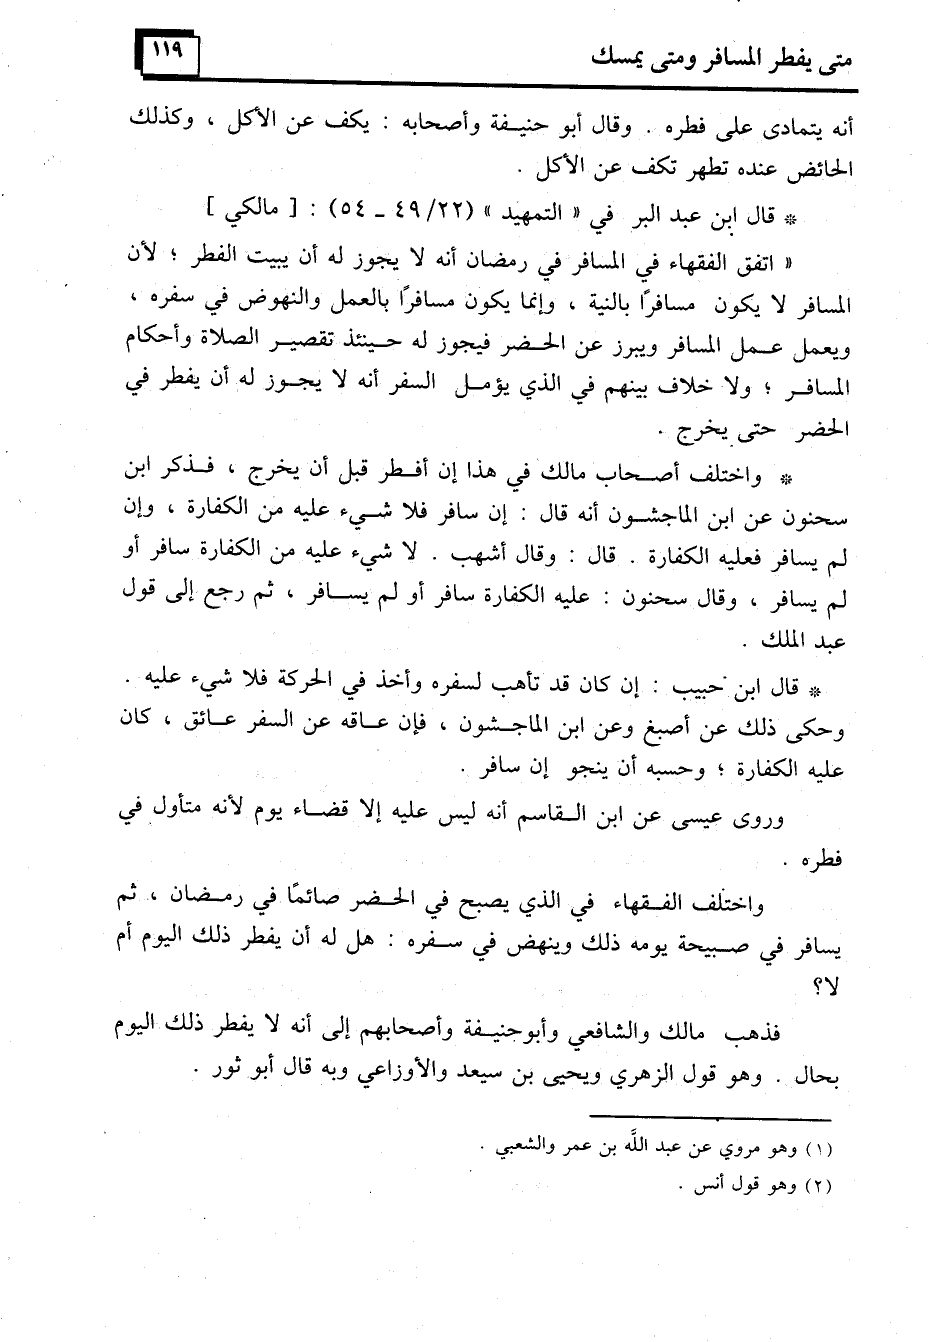 متى يفطر المسافر ومتى يمسك
١١٩
أنه يتمادى على فطره . وقال أبو حنيفة وأصحابه : يكف عن الأكل ، وكذلك
الحائض عنده تطهر تكف عن الأكل .
* قال ابن عبد البر في « التمهيد » (٤٩/٢٢ ـ ٥٤) : [ مالكي ]
« اتفق الفقهاء في المسافر في رمضان أنه لا يجوز له أن يبيت الفطر ؛ لأن
المسافر لا يكون مسافرًا بالنية ، وإنما يكون مسافرًا بالعمل والنهوض في سفره ،
ويعمل عمل المسافر ويبرز عن الحضر فيجوز له حينئذ تقصير الصلاة وأحكام
المسافر ؛ ولا خلاف بينهم في الذي يؤمل السفر أنه لا يجوز له أن يفطر في
الحضر حتى يخرج .
* واختلف أصحاب مالك في هذا إن أفطر قبل أن يخرج ، فذكر ابن
سحنون عن ابن الماجشون أنه قال : إن سافر فلا شيء عليه من الكفارة ، وإن
لم يسافر فعليه الكفارة . قال : وقال أشهب . لا شيء عليه من الكفارة سافر أو
لم يسافر ، وقال سحنون : عليه الكفارة سافر أو لم يسافر ، ثم رجع إلى قول
عبد الملك .
* قال ابن حبيب : إن كان قد تأهب لسفره وأخذ في الحركة فلا شيء عليه .
وحكى ذلك عن أصبغ وعن ابن الماجشون ، فإن عاقه عن السفر عائق ، كان
عليه الكفارة ؛ وحسبه أن ينجو إن سافر .
وروى عيسى عن ابن القاسم أنه ليس عليه إلا قضاء يوم لأنه متأول في
فطره .
واختلف الفقهاء في الذي يصبح في الحضر صائمًا في رمضان ، ثم
يسافر في صبيحة يومه ذلك وينهض في سفره : هل له أن يفطر ذلك اليوم أم
لا؟
فذهب مالك والشافعي وأبوحنيفة وأصحابهم إلى أنه لا يفطر ذلك اليوم
بحال . وهو قول الزهري ويحيى بن سيعد والأوزاعي وبه قال أبو ثور .
(١) وهو مروي عن عبد اللَّه بن عمر والشعبي .
(٢) وهو قول أنس .